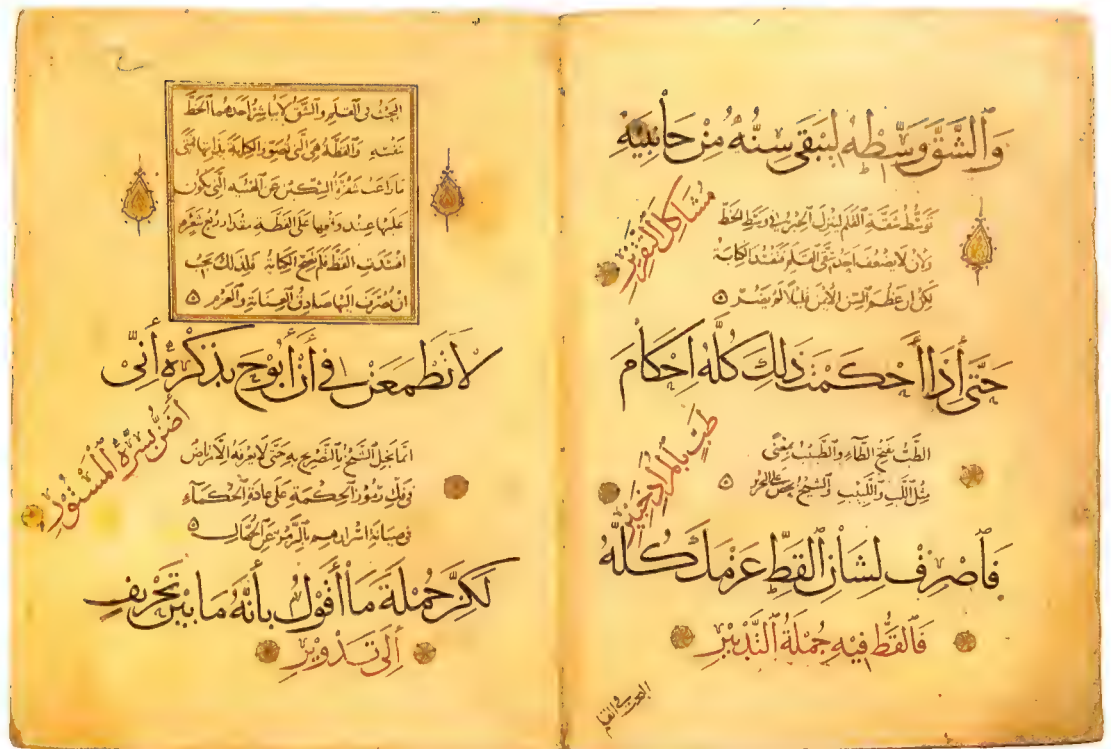 وَالشَّقَّ وَسِّطْهُ لِيَبْقَى سِنُّهُ مِنْ جَانِبَيْهِ
مُشَاكِلَ التَّقْدِيرِ
تَوَسُّطُ شَقَّةِ القَلَمِ لِيَنْزِلَ الحِبْرُ في وَسَطِ الخَطِّ
وَلِأَنْ لَا يَضْعُفَ أَحَدُ شِقَّيِ القَلَمِ فَتَفْسُدَ الكِتَابَةُ
لَكِنْ إِنْ عَظُمَ السِّنُّ الأَيْمَنُ قَلِيلًا لَمْ يَضُرَّ ۝
حَتَّى إِذَا أَحْكَمْتَ ذَلِكَ كُلَّهُ إِحْكَامَ
طَبٍّ بِالمُرَادِ خَبِيرِ
الطَّبُّ بِفَتْحِ الطَّاءِ وَالطَّبِيبُ بِمَعْنًى
مِثْلُ اللَّبِّ وَاللَّبِيبِ وَالشَّيْخُ يَحُضُّ عَلَى ۝
فَاصْرِفْ لِشَانِ القَطِّ عَزْمَكَ كُلَّهُ
فَالقَطُّ فِيهِ جُمْلَةُ التَّدْبِيرِ
البحث في القلم
البَحْثُ في القَلَمِ وَالشَّقُّ لَا يُبَاشِرُ أَحَدُهُمَا الخَطَّ
بِنَفْسِهِ وَالقَطَّةُ هِيَ الَّتِي تُصَوِّرُ الكَلِمَةَ بِذَاتِهَا فَمَتَى
مَا زَاغَتْ شَفْرَةُ السِّكِّينِ عَنِ الَّتِي يَكُونُ
عَلَيْهَا عِنْدَ عَلَى القَطَّةِ مِقْدَارَ رُبْعِ شَعْرَةٍ
القَطُّ فَلَمْ تَصِحَّ الكِتَابَةُ فَلِذَلِكَ يَجِبُ
أَنْ تُصْرَفَ إِلَيْهَا صَادِقُ العِنَايَةِ وَالعَزْمِ ۝
لَا تَطْمَعَنْ في أَنْ أَبُوحَ بِذِكْرِهِ أَنِّي
أَضَنُّ بِسِرِّهِ المَسْتُورِ
إِنَّمَا بَخِلَ الشَّيْخُ بِالتَّصْرِيحِ بِهِ حَتَّى لَا يَعْرِفَهُ إِلَّا مُرْتَاضٌ
في فَكِّ رُمُوزِ الحِكْمَةِ عَلَى عَادَةِ الحُكَمَاءِ
في صِيَانَةِ أَسْرَارِهِمْ بِالرَّمْزِ عَنِ الجُهَّالِ ۝
لَكِنَّ جُمْلَةَ مَا أَقُولُ بِأَنَّهُ مَا بَيْنَ تَحْرِيفٍ
إِلَى تَدْوِيرِ